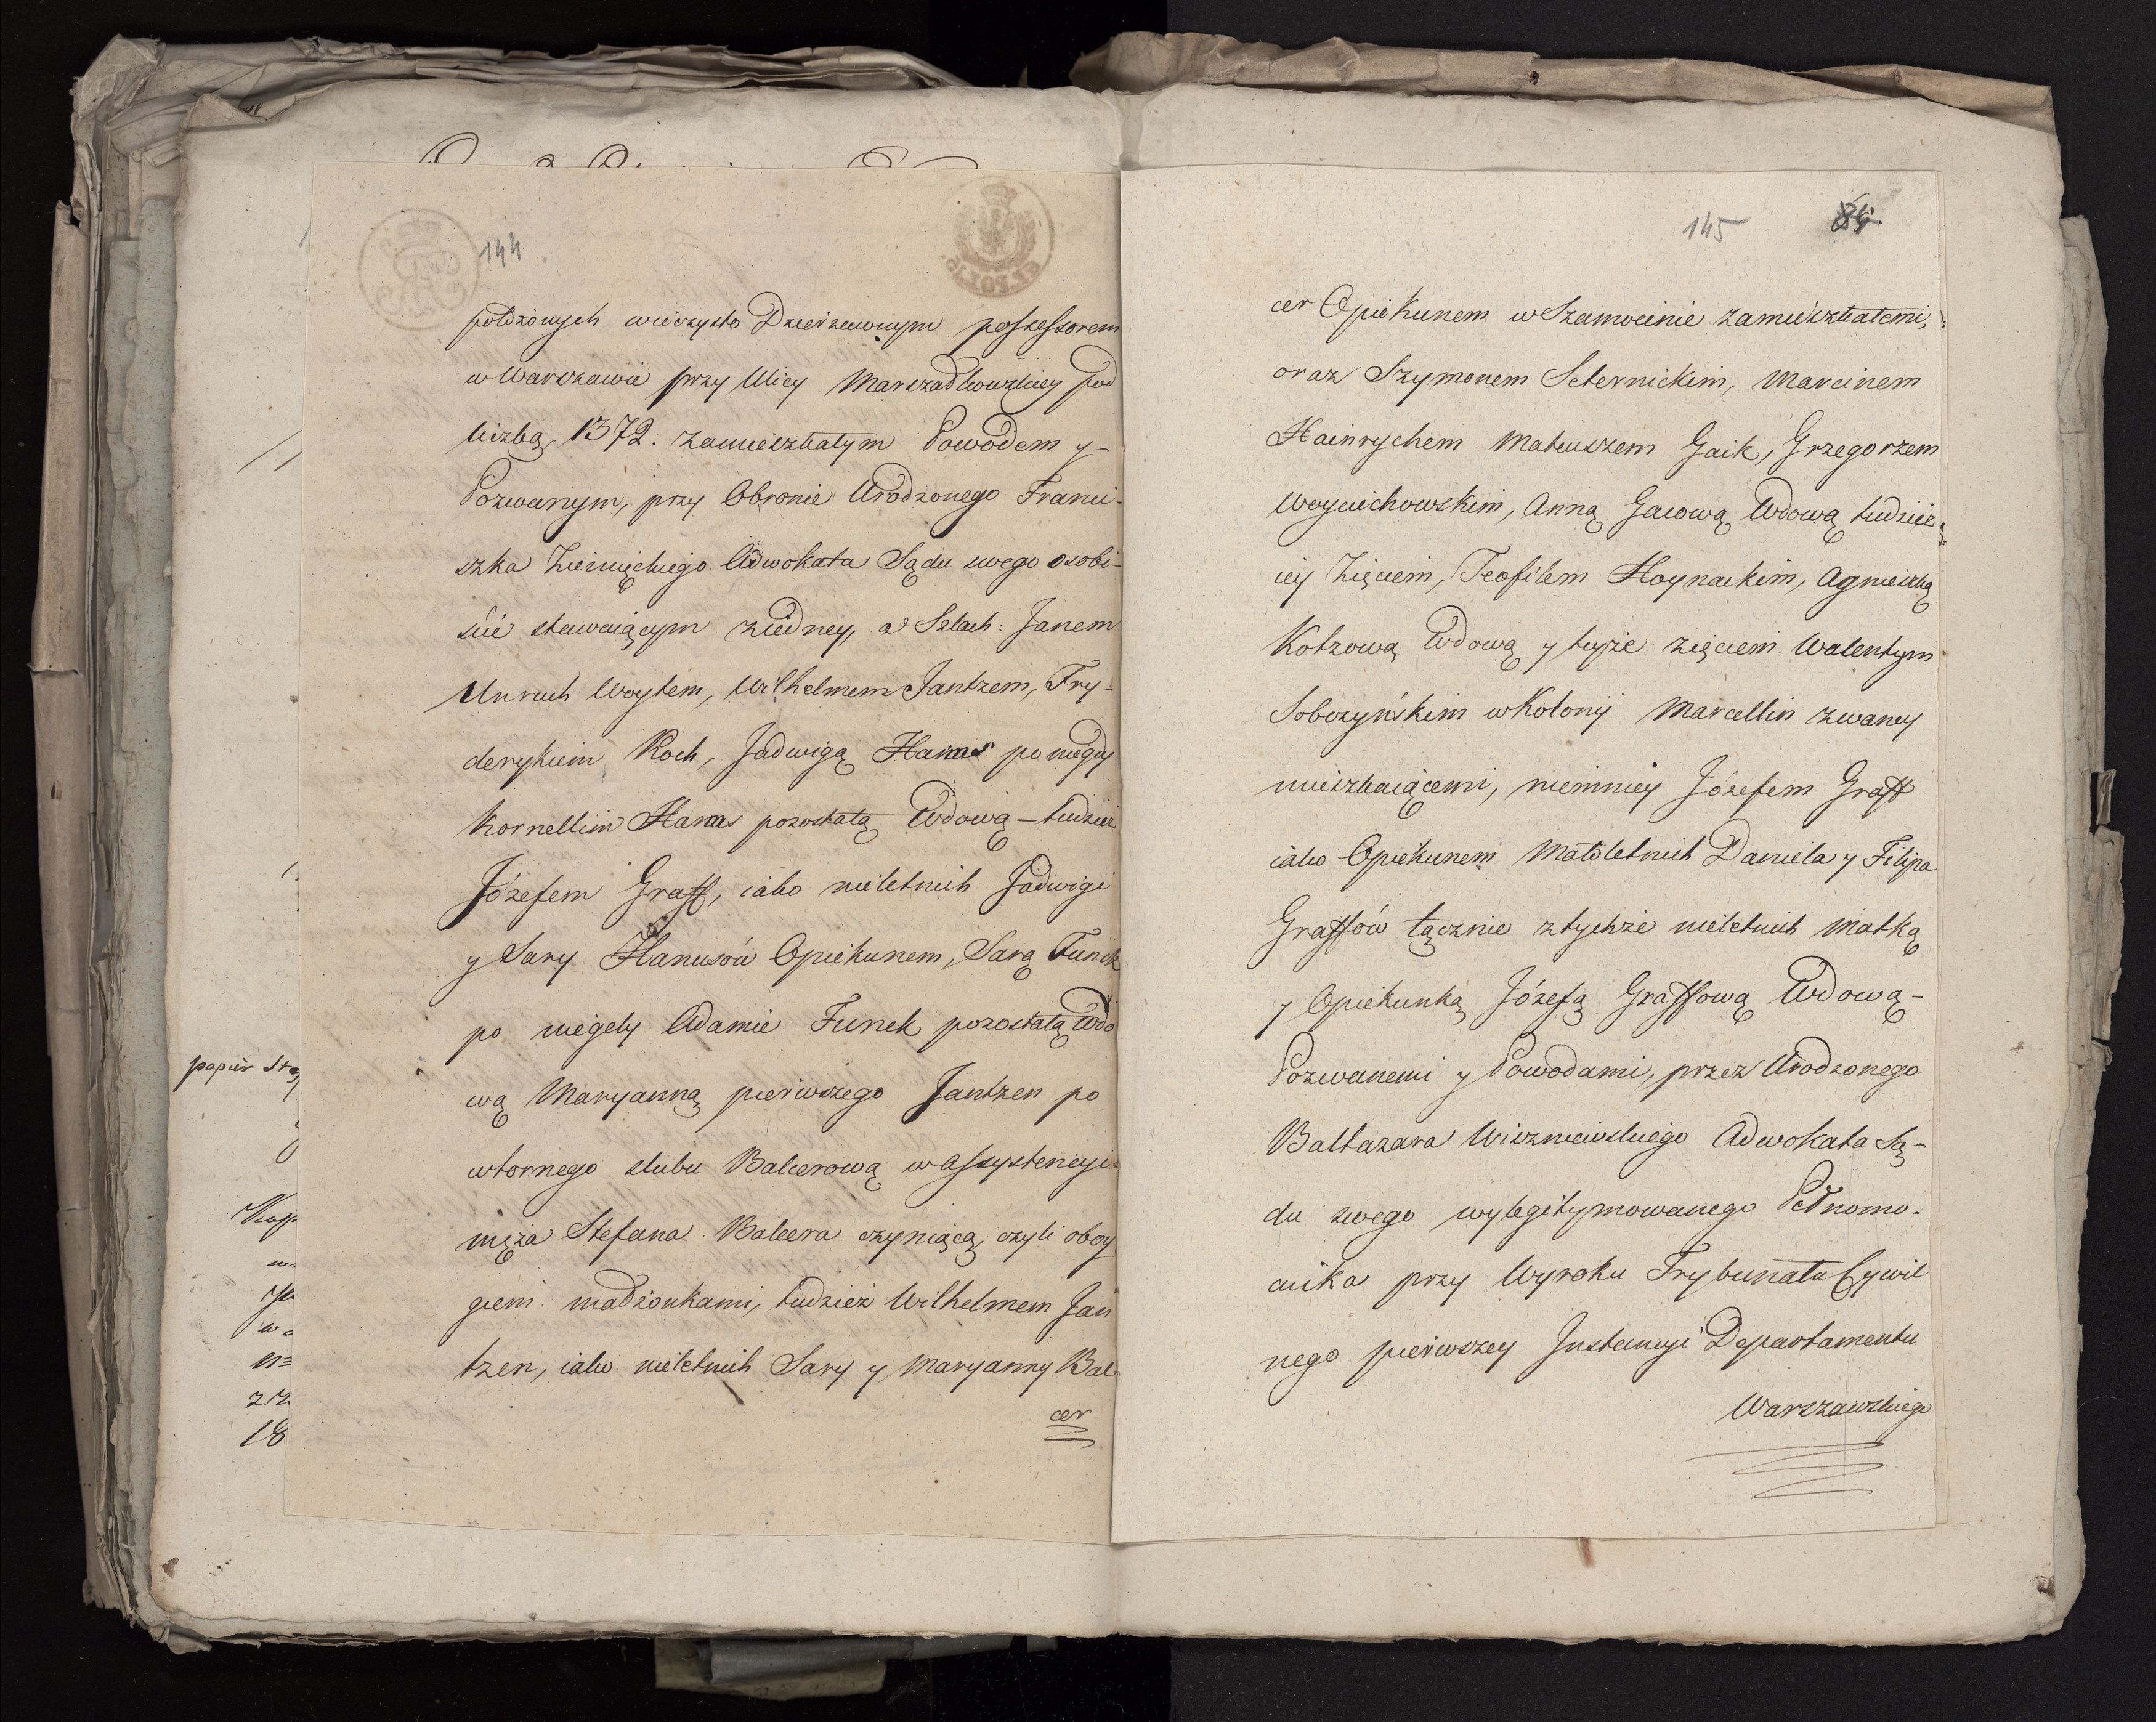 144
położonych wieczysto Dzierzawnym possessorem
w Warszawie przy Ulicy Marszałkowskiey pod
liczbą 1372. zamieszkałym Powodem y
Pozwanym, przy Obronie Urodzonego Franci-
szka Adwokata Sądu swego osobi-
ście stawaiącym z iedney, a Szlach: Janem
Unruch Woytem, Wilhelmem Jantzem, Fry-
derykiem Koch, Jadwigą Hanus po niegdy
Kornellim Hanus pozostałą Wdową – tudzież
Józefem Graff, iako nieletnich Jadwigi
y Sary Hanusów Opiekunem, Sarą Funck
po niegdy Adamie Funck pozostałą Wdo
wą Maryanną pierwszego Jantzen po
wtornego slubu Balcerową w assystencyi
męża Stefana Balcera czyniącą, czyli oboy
giem małżonkami, tudzież Wilhelmem Jan
tzen, iako nieletnich Sary y Maryanny Bal-
cer
papier
18
145
84.
cer Opiekunem w Szamocinie zamieszkałemi,
oraz Szymonem Seternickim, Marcinem
Hainrychem Mateuszem Gaik, Grzegorzem
Woyciechowskim, Anną Gacową Wdową tudzież
iey Zięciem, Teofilem Hoynackim, Agnieszką
Kotzową Wdową y teyże zięciem Walentym
Sobczyńskim w Kolonij Marcellin zwaney
mieszkaiącemi, niemniey Józefem Graff
iako Opiekunem Małoletnich Daniela y Filipa
Graffów łącznie z tychże nieletnich Matką
y Opiekunką Józefą Graffową Wdową –
Pozwanemi y Powodami, przez Urodzonego
Baltazara Wiszniewskiego Adwokata Są-
du swego wylegitymowanego Pełnomo-
cnika przy Wyroku Trybunału Cywil
nego pierwszey Instancyi Departamentu
Warszawskiego